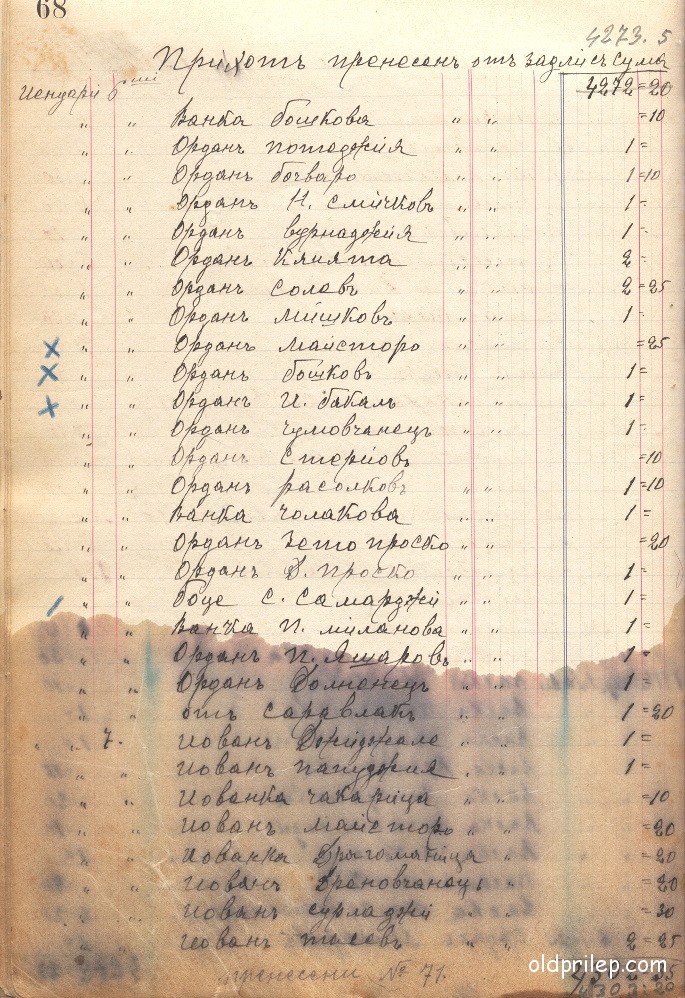 68
4273.5
Приходъ пренесенъ отъ задлисъ сума
Иенуарй 6 4272=20
„ „ Ванка бошкова „ „ =10
„ „ Орданъ потаджия „ „ 1=
„ „ Орданъ бочваро „ „ 1=10
„ „ Орданъ Н. смичковъ „ „ 1=
„ „ Орданъ вурнаджия „ „ 1=
„ „ Орданъ Кяията „ „ 2=
„ „ Орданъ солевъ „ „ 2=25
„ „ Орданъ мишковъ „ „ 1=
„ „ Орданъ майсторо „ „ =25
„ „ Орданъ бошковъ „ „ 1=
„ „ Орданъ И. бакалъ „ „ 1=
„ „ Орданъ чумовчанецъ „ „ 1=
„ „ Орданъ стерйовъ =10
„ „ Орданъ расолковъ „ „ 1=10
„ „ Ванка чолакова „ „ 1=
„ „ Орданъ зето проско „ „ =20
„ „ Орданъ Д. проско „ „ 1=
„ „ боце с. самарджй „ „ 1=
„ „ Ванка П. миланова „ „ 1=
„ „ Орданъ П. Яшаровъ „ „ 1=
„ „ Орданъ Долненецъ „ „ 1=
„ „ отъ саравлакъ „ „ 1=20
„ „ 7. Иованъ Джиджале „ „ 1=
„ „ Иованъ папуджия „ „ 1=
„ „ Иованка чакарица „ „ =10
„ „ Иованъ майсторо „ „ =20
„ „ Иованка Драгоманица „ „ =20
„ „ Иованъ Дреновчанецъ „ =20
„ „ Иованъ сурладжй „ „ =30
„ „ Иованъ тасевъ „ „ 2=25
пренесени № 71.
4302=20
oldprilep.com